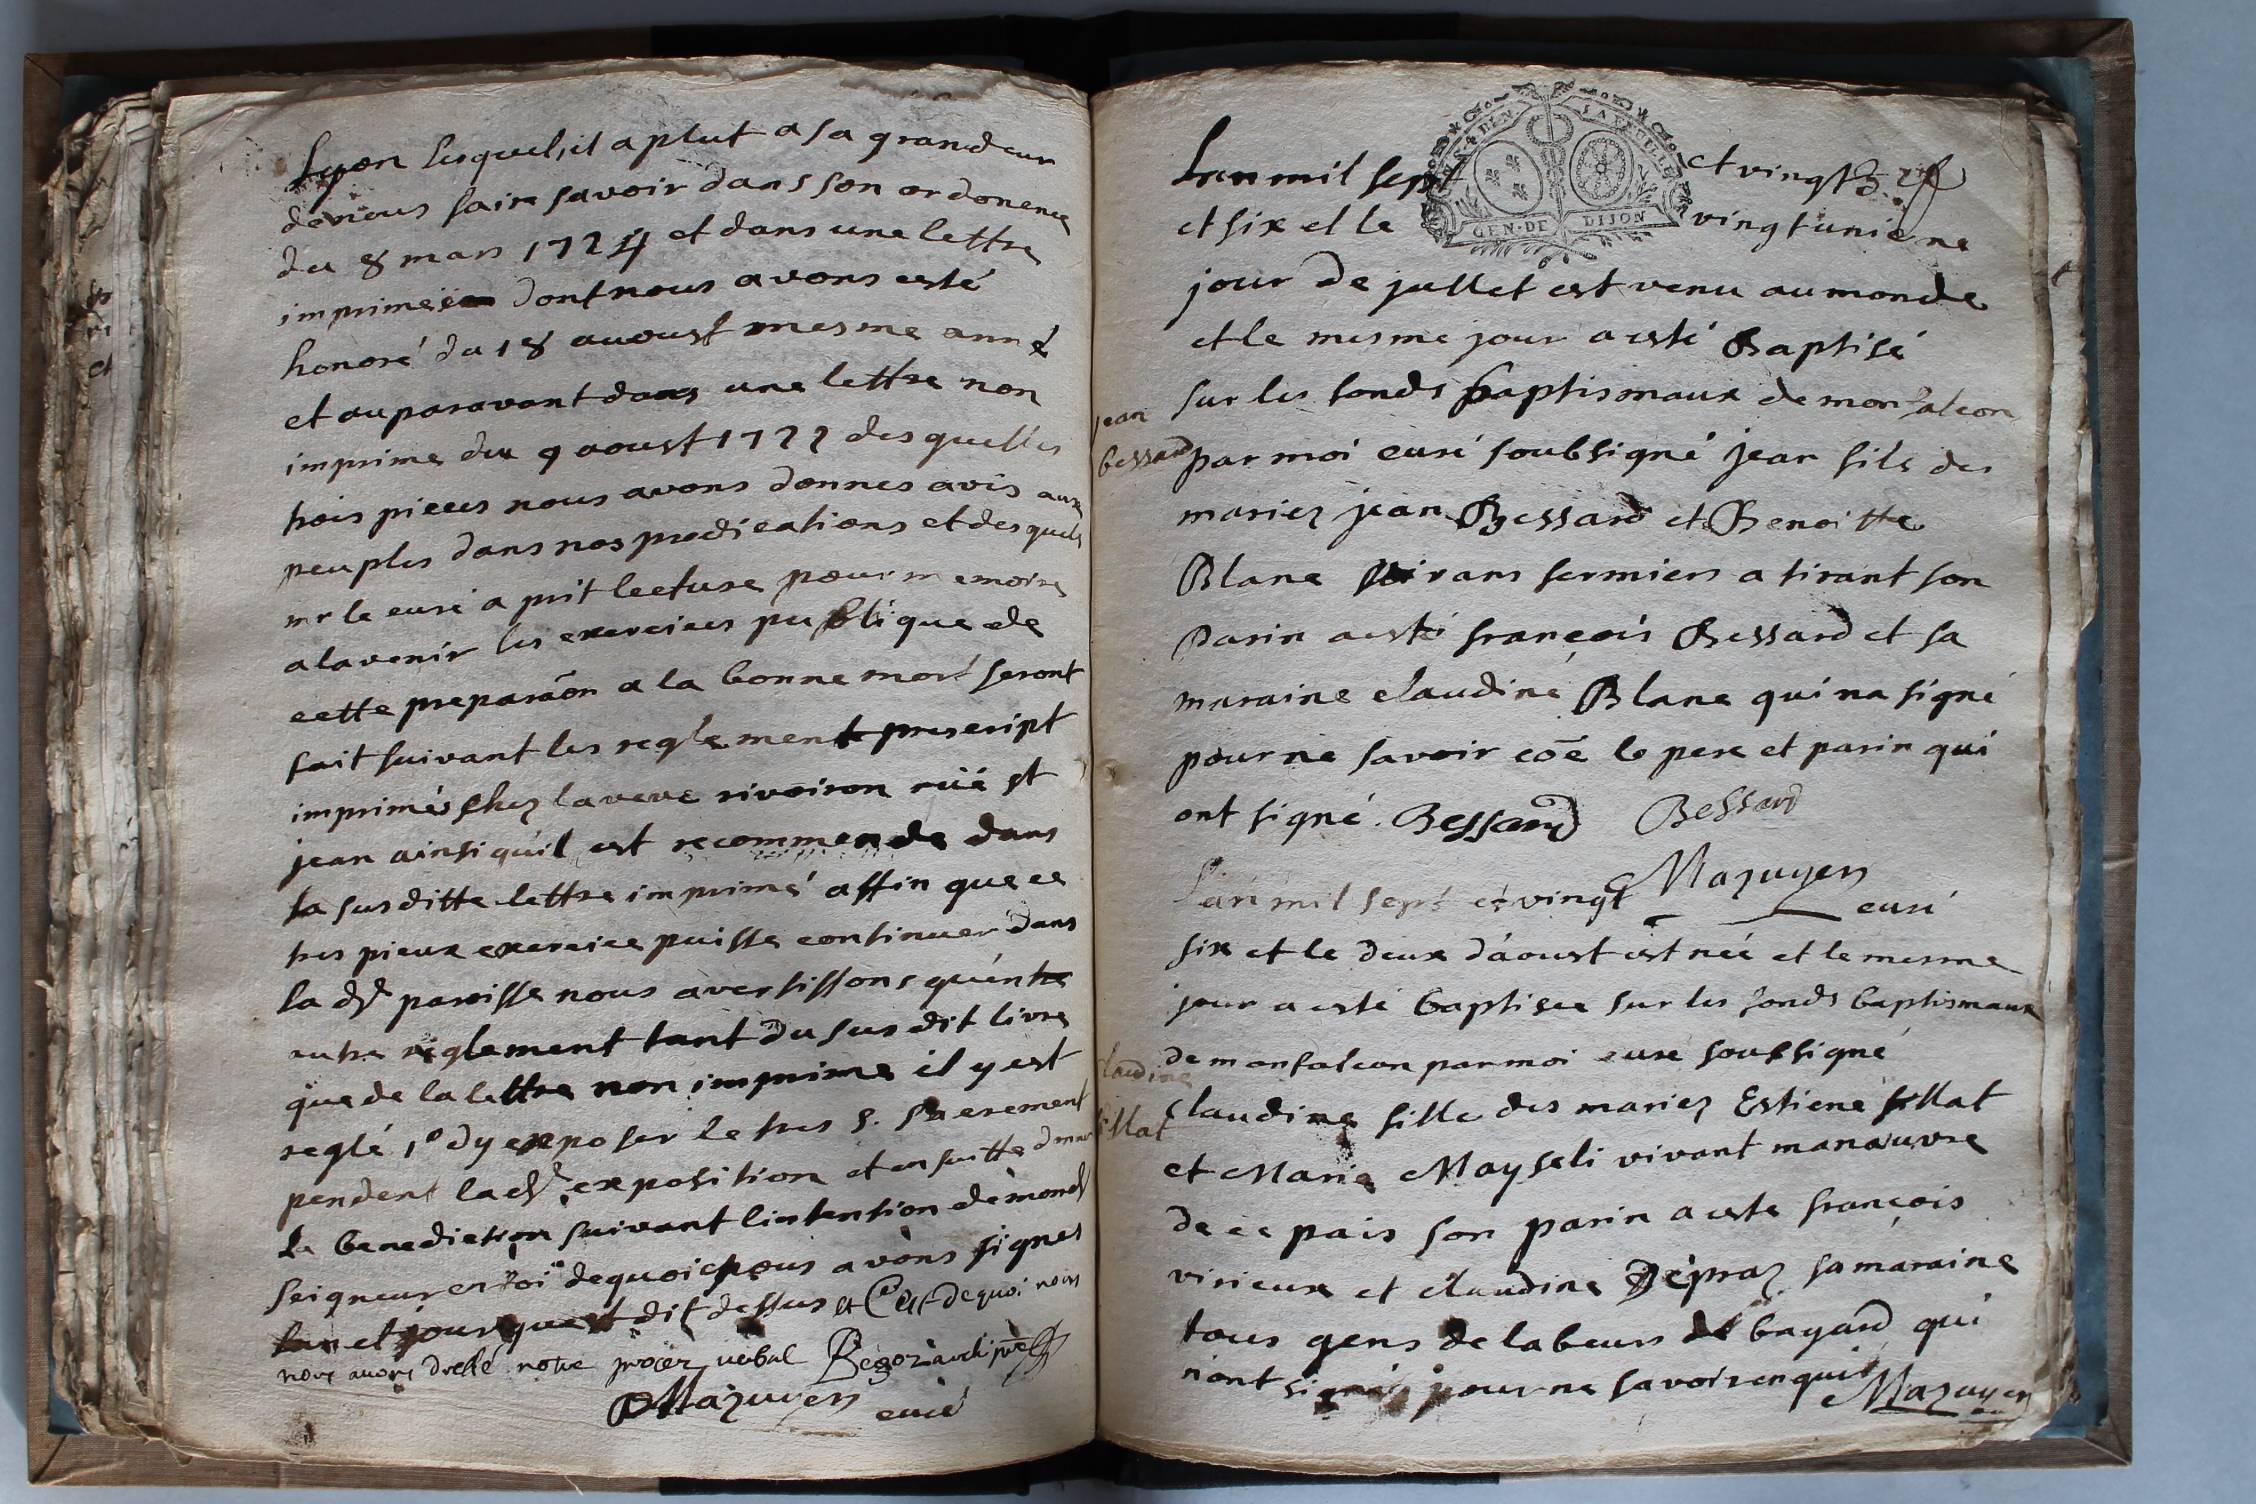 Lyon lesquel, il a plut a sa grandeur
de nous faire savoir dans son ordonence
du 8 mars 1724 et dans une lettre
imprimée dont nous avons esté
honoré du 18 auoust mesme anné
et auparavant dans une lettre non
imprime du 9 aoust 1722 des quelles
trois pieces nous avons donnes avis aux
peuples dans nos predications et des quels
mr le curé a prit lecture pour memoire
a lavenir les exercices publique de
cette preparaôn a la bonne mort seront
fait suivant les reglement prescript
imprimés chez la veve rivoiron rüe st
jean ainsi qu'il est recommende dans
la susditte lettre imprimé affin que ce
tres pieux exercice puisse continuer dans
la dte paroisse nous avertissons qu'entre
autre reglement tant du susdit livre
que de la lettre non imprime il y est
reglé 1o dy exposer le tres S. Sacrement
pendent la dte exposition et en suitte donner
la benediction suivant lintention de mond
seigneur en foi de quoi nous avons signes
lan et jour que dit dessus et C'est de quoi nous
nous avons dressé notre procez verbal Begoz archiptre
Mazuyer curé
Lan mil sept et vingt
et six et le vingtunieme
GEN·DE DIJON
LA FEUILLE
jour de jullet est venu au monde
et le mesme jour a esté Baptisé
sur les fonds baptismaux de monfalcon
jean
bessard
par moi curé soubsigné jean fils des
mariez jean Bessard et Benoitte
Blanc vivans fermiers a tirant son
Parin a esté françois Bessard et sa
maraine claudine Blanc qui na signé
pour ne savoir cõe le pere et parin qui
ont signé. Bessard Bessard
Mazuyer
curé
L'an mil sept et vingt
six et le deux d'áoust est née et le mesme
jour a esté baptisee sur les fonds baptismaux
de monfalcon par moi cure soubsigné
Claudine
fillat
claudine fille des mariez Estiene fillat
et Marie Mayseli vivant manœuvre
de ce pais son parin a este françois
virieux et claudine Dépraz sa maraine
tous gens de labeurs de bayard qui
n'ont signés pour ne savoir enquis
Mazuyer